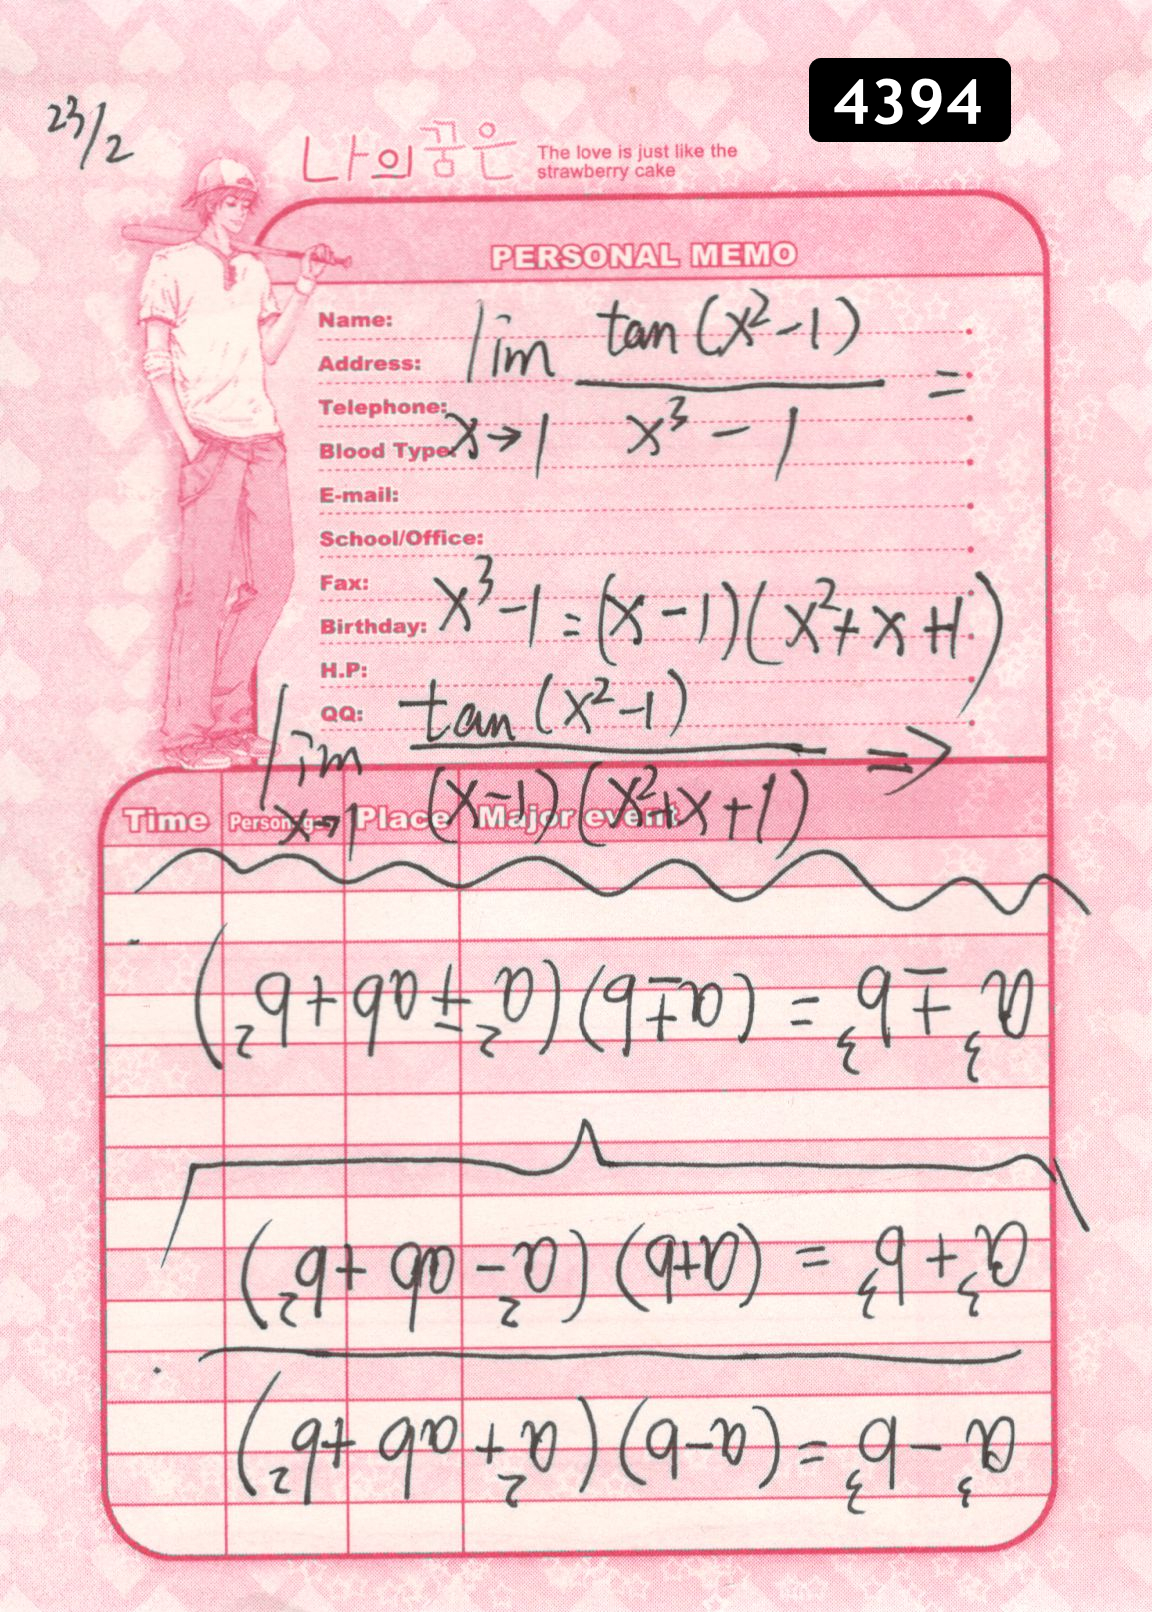 4394
23/2
나의꿈은 The love is just like the
strawberry cake
PERSONAL MEMO
Name:
Address:
Telephone:
Blood Type:
E-mail:
School/Office:
Fax:
Birthday:
H.P:
QQ:
lim tan (x²-1) =
x→1 x³ - 1
x³-1 = (x-1)(x²+x+1)
lim tan (x²-1) ⇒
x→1 (x-1)(x²+x+1)
Time Personage Place Major event
a³ ± b³ = (a±b)(a² ∓ ab + b²)
a³ + b³ = (a+b)(a² - ab + b²)
a³ - b³ = (a-b)(a² + ab + b²)